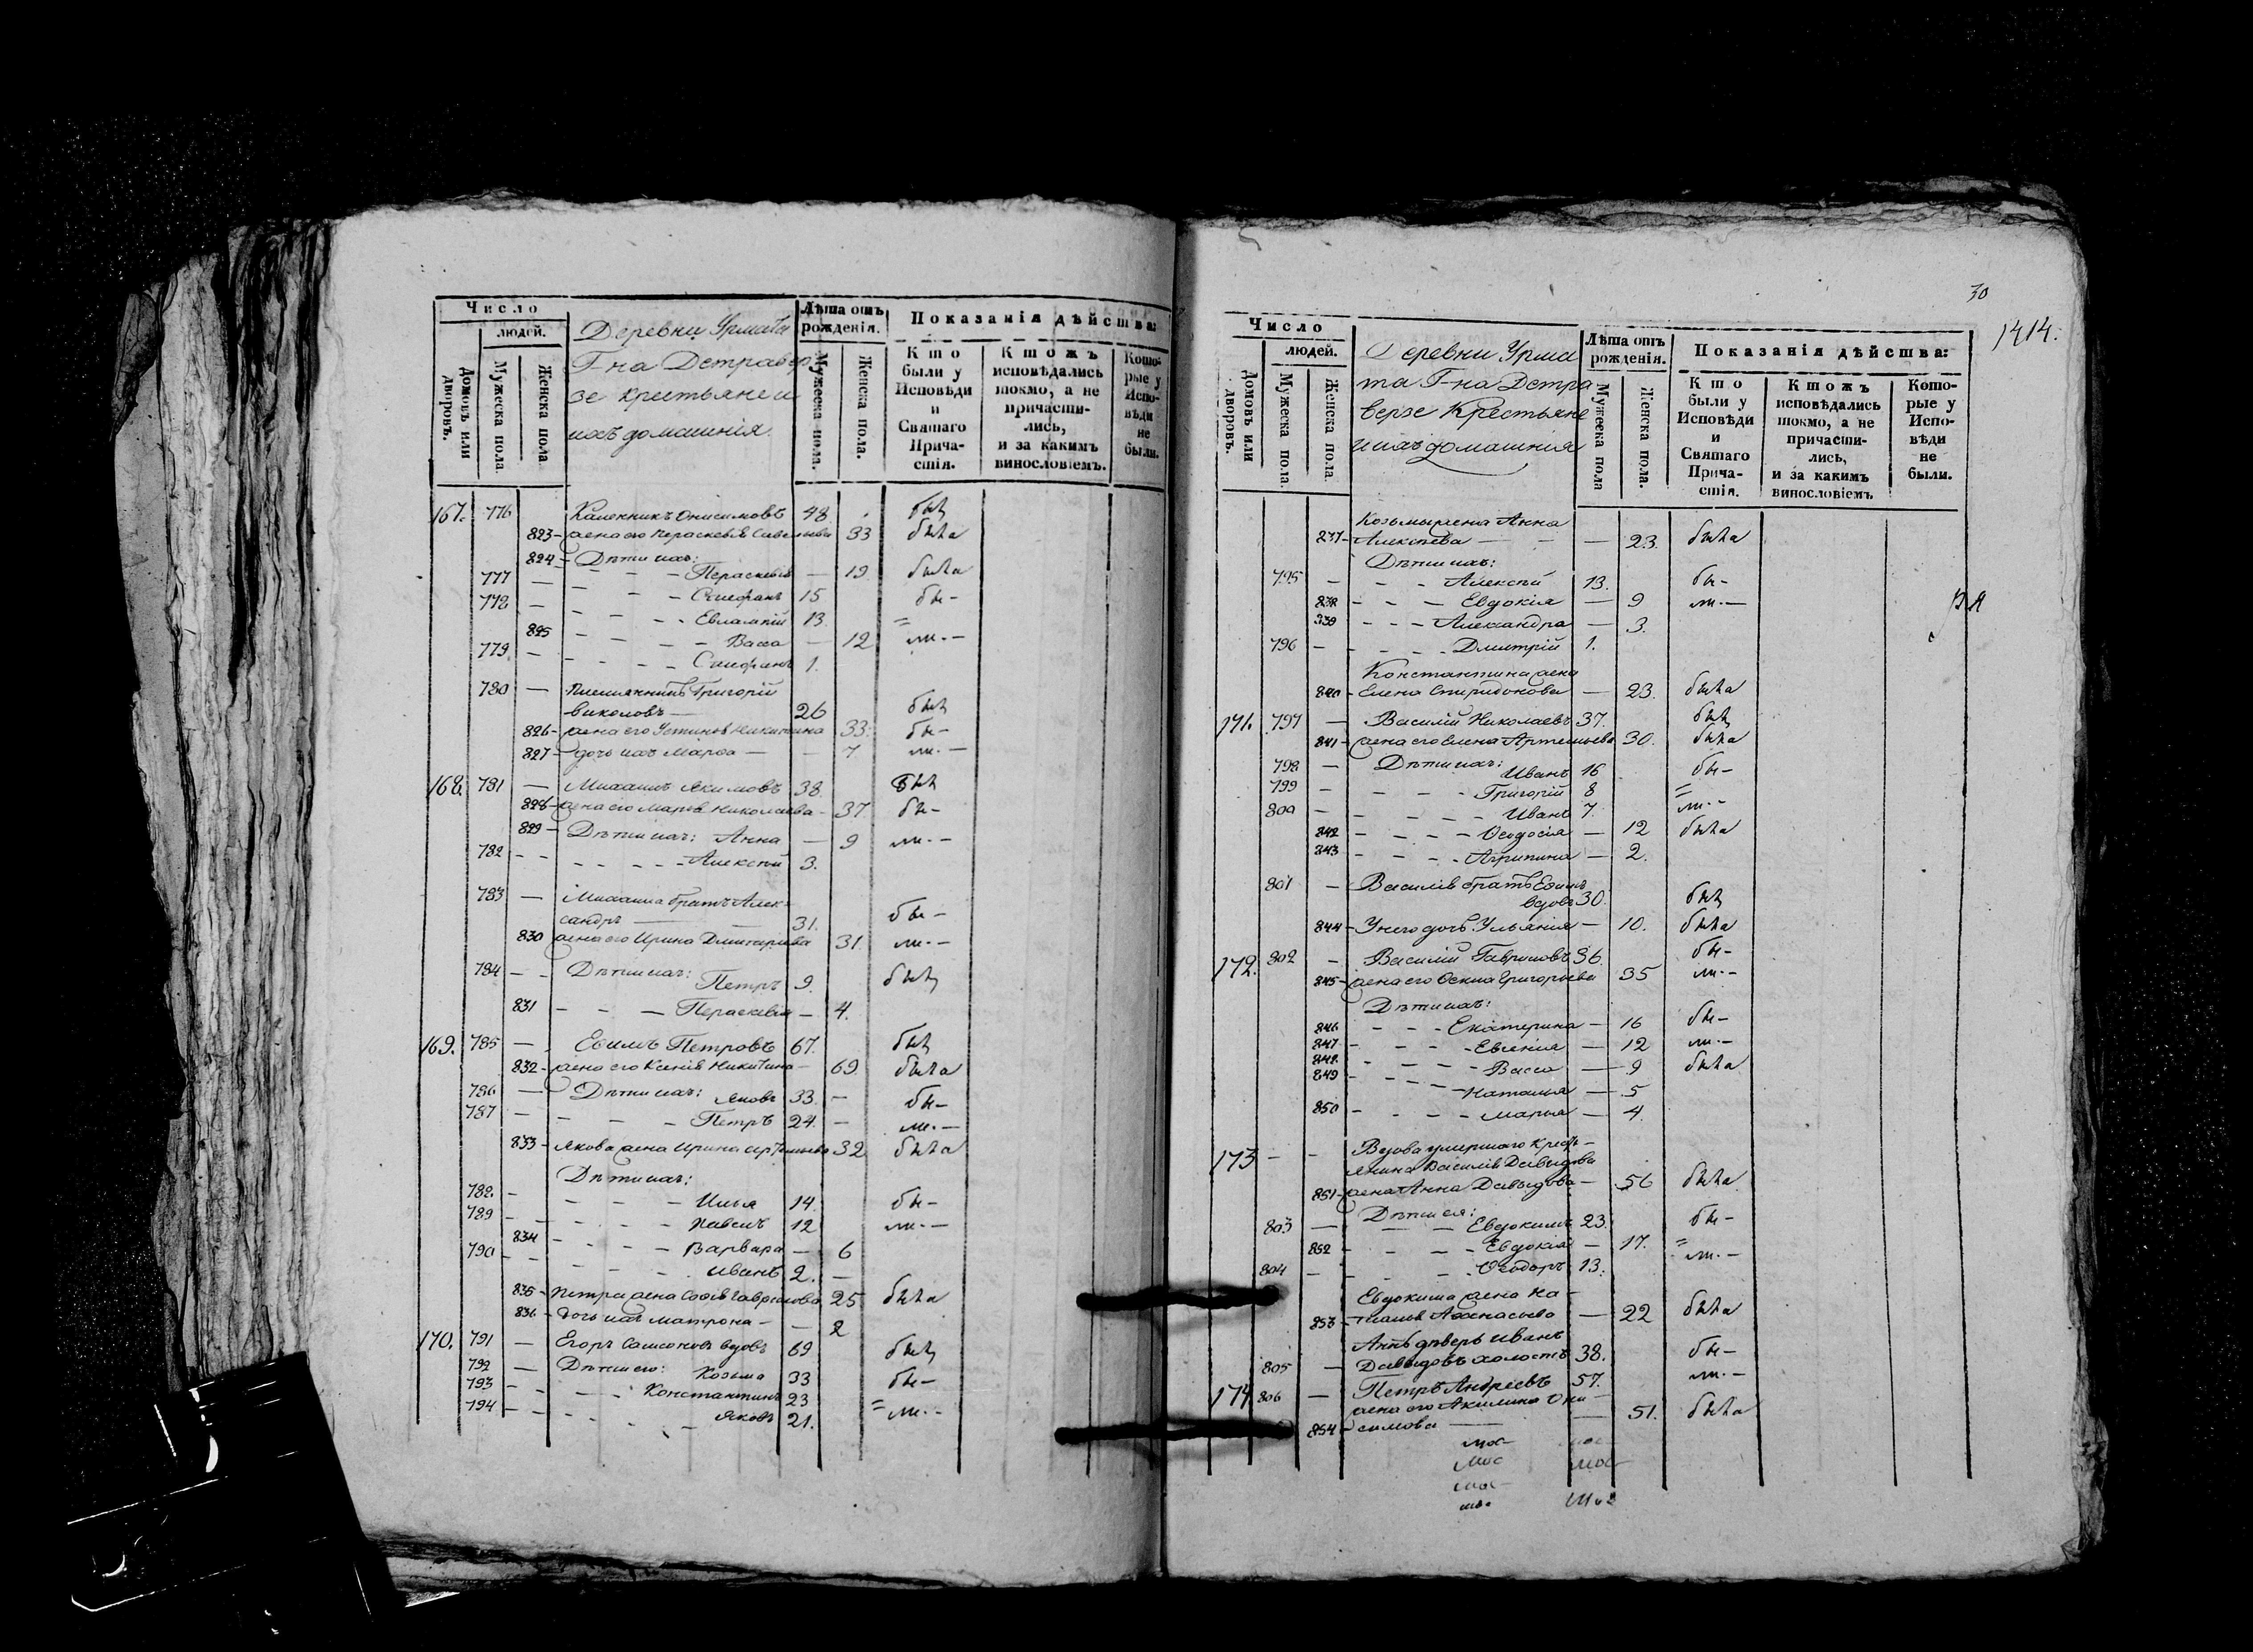 Число
людей.
Домовъ или дворовъ.
Мужеска пола
Женска пола
Деревни Урмата
Г-на Детравер
зе крестьяне и
ихъ домашнія.
Лѣта отъ рожденія.
Мужеска пола.
Женска пола.
Показанія дѣйства:
Кто были у Исповѣди и Святаго Причастія.
Ктожъ исповѣдались токмо, а не причастились, и за какимъ винословіемъ.
Которые у Исповѣди не были.
167. 776 Каленникъ Онисимовъ 48 былъ
823 - жена его Параскевія Савельева 33 была
824 - Дѣти ихъ:
- - - Параскевія - 19 была
777 - - - - Стефанъ 15 бы-
778 - - - - Евлампій 13. =
825 - - - - Васса - 12 ли. -
779 - - - - Стефанъ 1.
780 - племянникъ Григорій
Виколовъ - 26 былъ
826 - жена его Устинія Никитина 33. бы-
827 - дочь ихъ Марѳа - - 7 ли. -
168. 781 - Михаилъ Якимовъ 38. былъ
828 - жена его Марѳа Николаева - 37. бы-
829 - Дѣти ихъ: Анна - 9 ли. -
782 - - - - - Алексѣй 3.
783 - Михаила братъ Алек-
сандръ - 31. бы-
830 жена его Ирина Дмитріева 31. ли. -
784 - - Дѣти ихъ: Петръ 9. былъ
831 - - - Параскевія - 4.
169. 785 - Ефимъ Петровъ 67. былъ
832 - жена его Ксенія Никитина - 69. была
786 - Дѣти ихъ: Яковъ 33. - бы-
787 - - - Петръ 24. - ли. -
833 - Якова жена Ирина Артемьева 32 была
Дѣти ихъ:
788. - - - - Илья 14. бы-
789 - - - - Павелъ 12 ли. -
834 - - - Варвара - 6
790 - - - - Иванъ 2. -
835 - Петра жена Софія Гаврилова 25 была
836 - дочь ихъ Матрона - - 2
170. 791 - Егоръ Самсоновъ вдовъ 69 былъ
792 - Дѣти его: Козьма 33 бы-
793 - - - - Константинъ 23 =
794 - - - - Яковъ 21. ли. -
30
1414.
Число
людей.
Домовъ или дворовъ.
Мужеска пола.
Женска пола.
Деревни Урма
та Г-на Детра
верзе Крестьяне
и ихъ домашнія
Лѣта отъ рожденія.
Мужеска пола
Женска пола.
Показанія дѣйства:
Кто были у Исповѣди и Святаго Причастія.
Ктожъ исповѣдались токмо, а не причастились, и за какимъ винословіемъ
Которые у Исповѣди не были.
Козьмы жена Анна
837 - Алексѣева - - - 23. была
Дѣти ихъ:
795 - - - Алексѣй 13. бы-
838 - - - Евдокія - 9 ли. -
839 - - - Александра - 3.
796 - - - - Дмитрій 1.
Константина жена
840 - Елена Спиридонова - 23. была
171. 797 - Василій Николаевъ 37. былъ
841 - жена его Елена Артемьева 30. была
798 - Дѣти ихъ: Иванъ 16 бы-
799 - - - - Григорій 8 =
800 - - - - Иванъ 7. ли. -
842 - - - - Ѳеодосія - 12 была
843 - - - - Агрипина - 2.
801 - Василія братъ Ефимъ
вдовъ 30. былъ
844 - У него дочь Ульянія - 10. была
172. 802 - Василій Гавриловъ 36. бы-
845 - жена его Ѳекла Григорьева 35 ли. -
Дѣти ихъ:
846 - - - Екатерина - 16 бы-
847 - - - - Евгенія - 12 ли. -
848 - - - - Васса - 9 была
849 - - - - Наталья - 5
850 - - - - Марья - 4.
173 - - Вдова умершаго кресть-
янина Василія Давыдова
851 - жена Анна Давыдова - 56 была
Дѣти ея:
803 - - - Евдокимъ 23. бы-
852 - - - - Евдокія - 17. =
804 - - - - Ѳеодоръ 13. ли. -
Евдокима жена На-
853 - талья Аѳанасьева - 22 была
Аннѣ дѣверь Иванъ
805 - Давыдовъ холостъ 38. бы-
174. 806 - Петръ Андреевъ 57. ли. -
жена его Акилина Они-
854 - симова - - 51. была